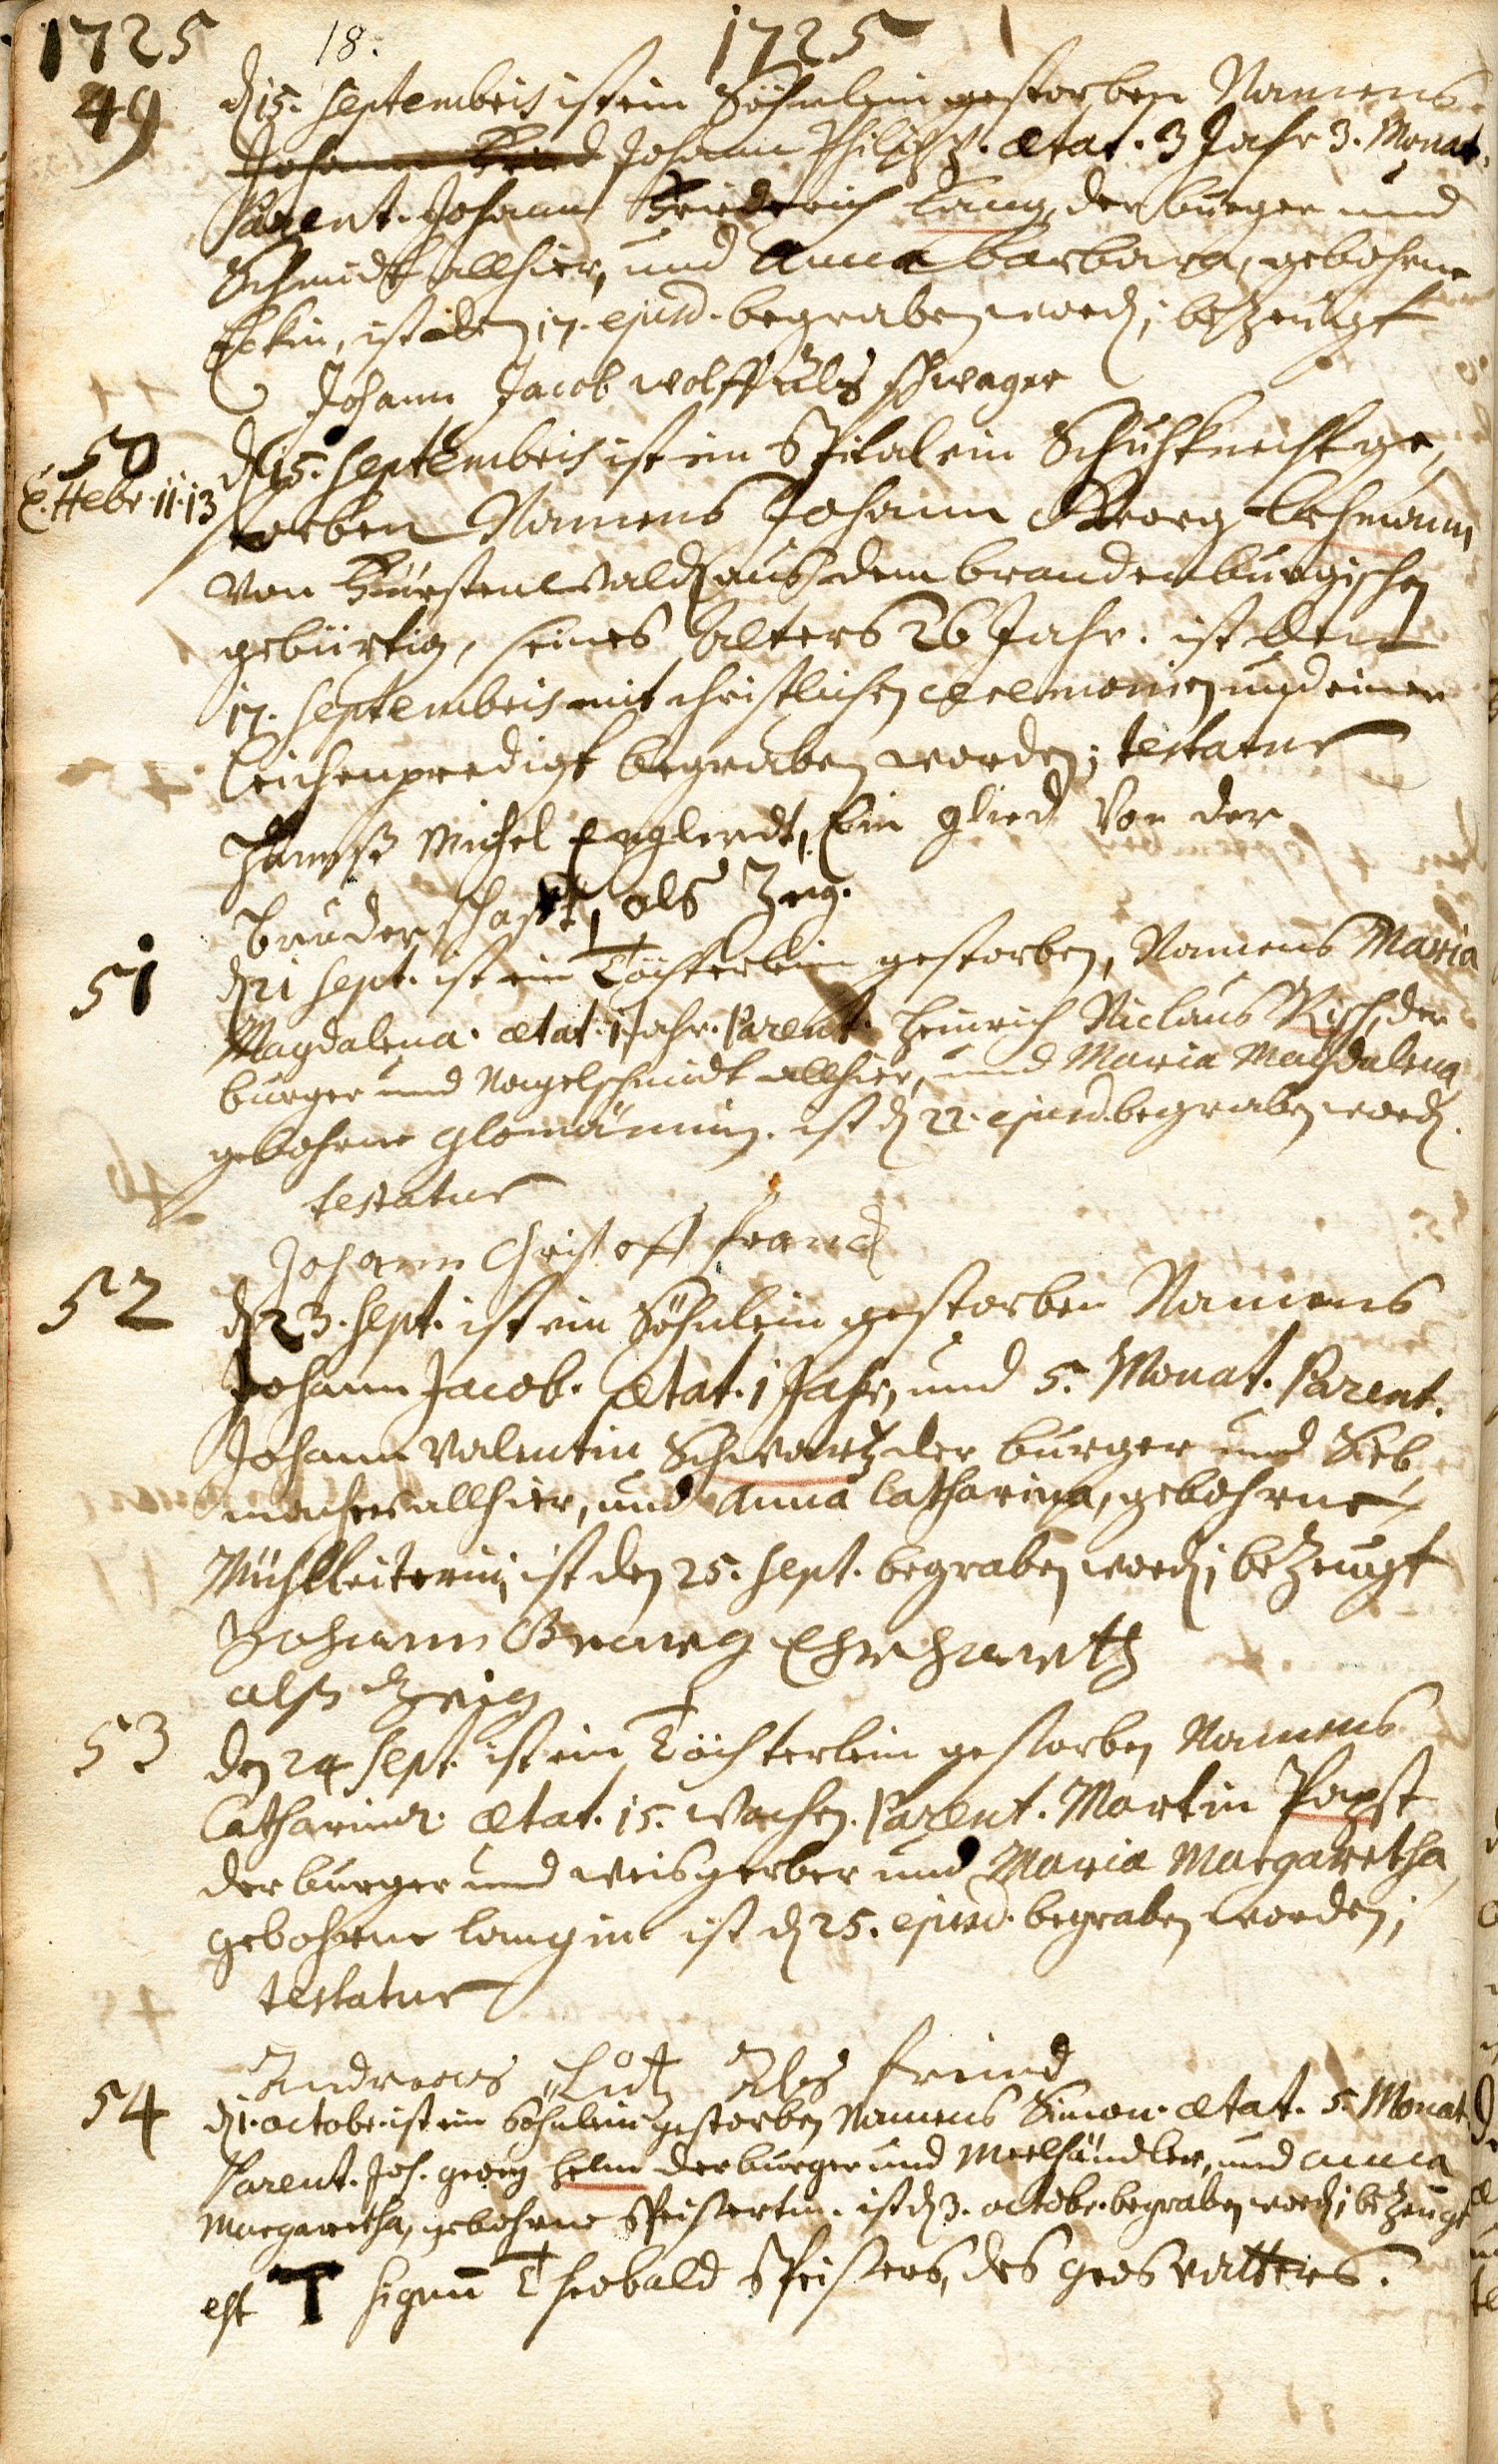 1725 18. 1725
49 d 15. Septembris ist ein Söhnlein gestorben Namens
Johann Fried Johann Philipp. Ætat. 3 Jahr 3. Monat.
Parent. Johann Friederich Lang, der burger und
Schmidt allhier, und Anna Barbara, gebohrne
Eckin, ist den 17. ejusd. begraben word; bezeugt
Johann Jacob Wolff als schwager
50 d 15. Septembris ist im Spital ein Schuhknecht ge,
C. Hebr. 11. 13
storben Namens Johann Georg Lehmann
von Fürstenwald aus dem brandenburgischen
gebürtig, seines Alters 26 Jahr. ist den
17. Septembris mit christlichen Ceremonien und einer
Leichenpredigt begraben worden; testatur
Hanß Michel Englerdt, Ein glied Von der
bruderschafft, als Zeig.
51 d 21 Sept. ist ein Töchterlein gestorben, Namens Maria
Magdalena. Ætat. 1 Jahr. Parent. Heinrich Niclaus Risch, der
burger und Nagelschmidt allhier, und Maria Magdalena,
gebohrne Glomännin. ist d 22. ejusd. begraben word.
testatur
Johann Christoff Franck
52 d 23. Sept. ist ein Söhnlein gestorben Namens
Johann Jacob. Ætat. 1 Jahr, und 5. Monat. Parent.
Johann Valentin Schwartz der burger und Sieb,
macher allhier, und Anna Catharina, gebohrne
Mühlleiterin, ist den 25. Sept. begraben word; bezeugt
Johann Georg
alß Zeig
53 den 24 Sept. ist ein Töchterlein gestorben Namens
Catharina. Ætat. 15. Wochen. Parent. Martin Papst
der burger und weisgerber und Maria Margaretha,
gebohrne Langin ist d 25. ejusd. begraben worden;
testatur
Andreas Lutz Als freind
54 d 1. Octobr. ist ein Söhnlein gestorben Namens Simon. Ætat. 5. Monat
Parent. Joh. Georg Helm der burger und Meelhändler, und Anna
Margaretha, gebohrne Speisertin. ist d 3. Octobr. begraben word; bezeugt
est T signum Theobald Speisers, des Grosvatters.